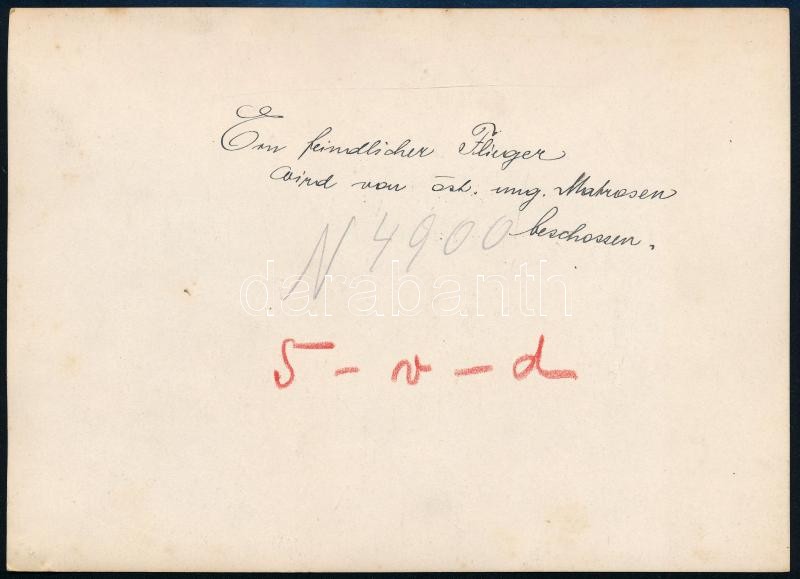 Ein feindlicher Flieger
wird von öst. ung. Matrosen
beschossen.
N 4900
darabanth
5 - v - d